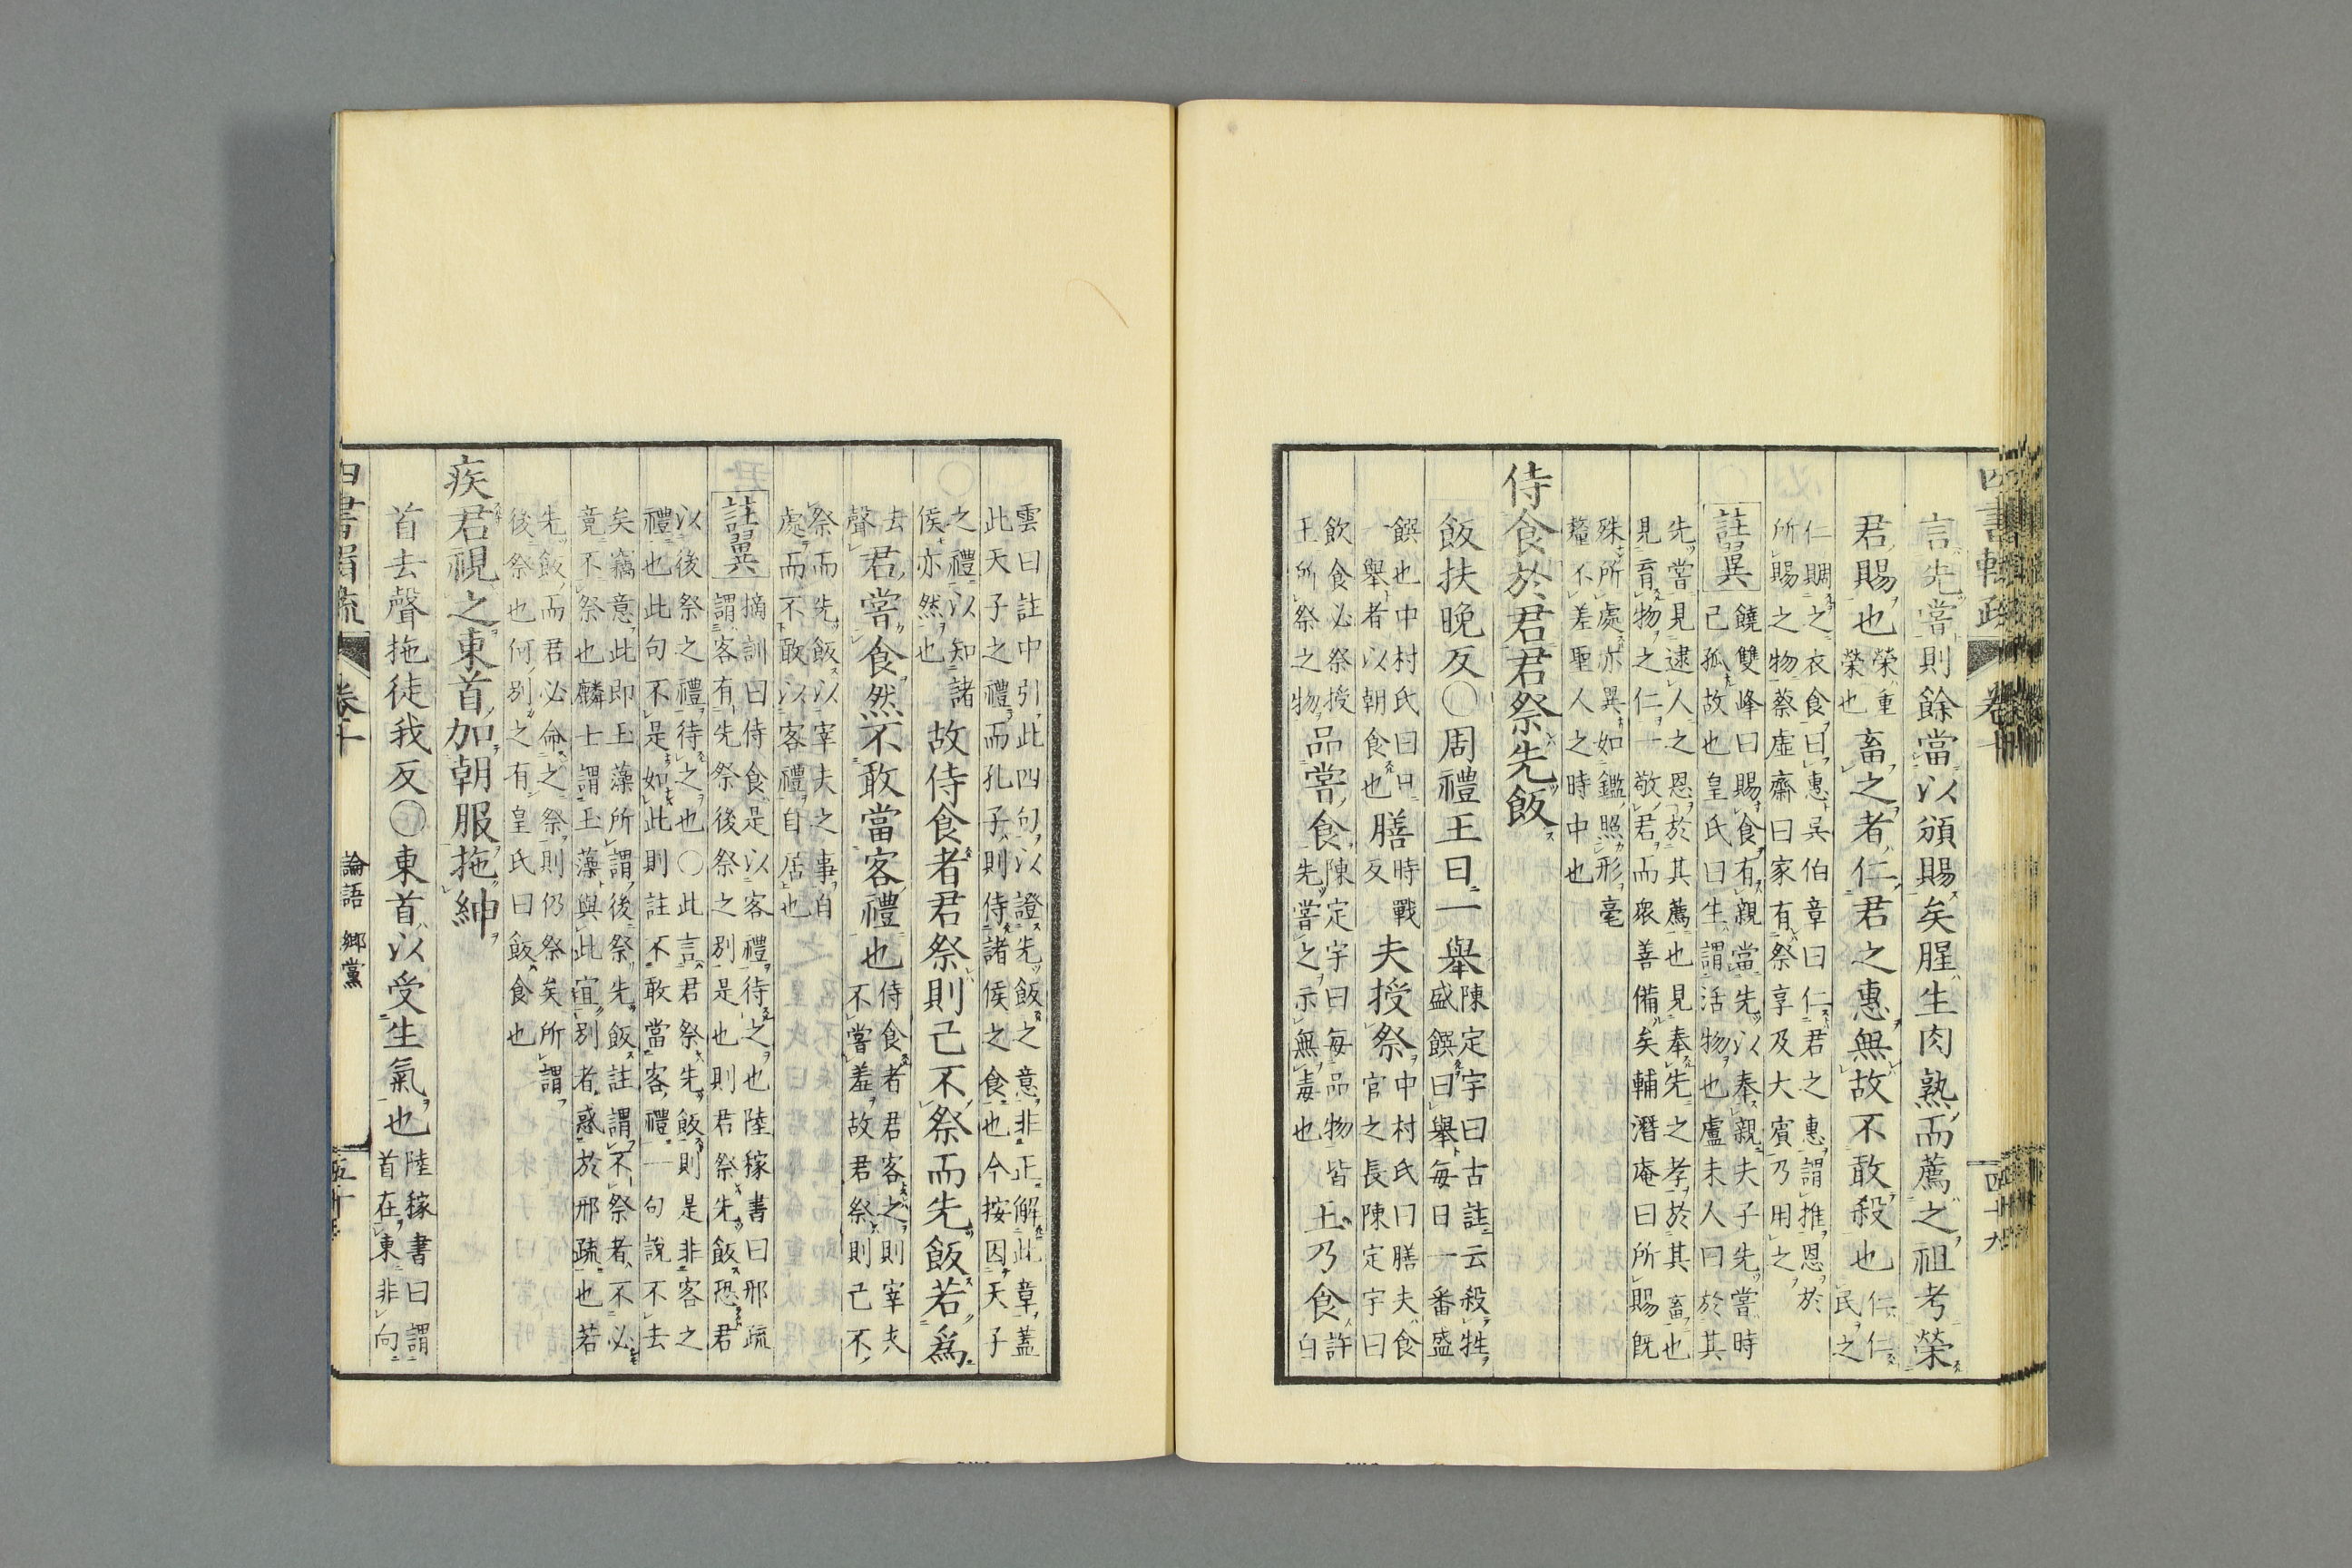 言先嘗則餘當以頒賜矣腥生肉熟而薦之祖考榮
君賜也榮重榮也畜之者仁君之惠無故不敢殺也仁仁民之
仁賙之衣食曰惠吳伯章曰仁君之惠謂推恩於
所賜之物蔡虚齋曰家有祭享及大賓乃用之
註翼
饒雙峰曰賜食有親當先以奉親夫子先嘗時
己孤故也皇氏曰生謂活物也盧未人曰於其
先嘗見逮人之恩於其薦也見奉先之孝於其畜也
見育物之仁一敬君而衆善備矣輔潛庵曰所賜既
殊所處亦異如鑑照形毫
釐不差聖人之時中也
侍食於君君祭先飯
飯扶晩反○周禮王日一舉
陳定宇曰古註云殺牲
盛饌曰舉每日一番盛
饌也中村氏曰日時戰
一舉者以朝食也反
膳夫授祭
中村氏曰膳夫食
官之長陳定宇曰
飲食必祭授
王所祭之物
品嘗食
陳定宇曰每品物皆
先嘗之示無毒也
王乃食
許白
雲曰註中引此四句以證先飯之意非正解此章蓋
此天子之禮而孔子則侍諸侯之食也今按因天子
之禮以知諸
侯亦然也
故侍食者君祭則己不祭而先飯若爲
去聲
君嘗食然不敢當客禮也
侍食者君客之則宰夫
不嘗羞故君祭則己不
祭而先飯以宰夫之事自
處而不敢以客禮自居也
註翼
摘訓曰侍食是以客禮待之也陸稼書曰邢疏
謂客有先祭後祭之別是也則君祭先飯恐君
以後祭之禮待之也○此言君祭先飯則是非客之
禮也此句不是如此則註不敢當客禮一句說不去
矣竊意此即玉藻所謂後祭先飯註謂不祭者不必
竟不祭也麟士謂玉藻與此宜別者惑於邢疏也若
先飯而君必命之祭則仍祭矣所謂
後祭也何別之有皇氏曰飯食也
疾君視之東首加朝服拖紳
首去聲拖徒我反○東首以受生氣也
陸稼書曰謂
首在東非向
卷十
論語 鄕黨
四十九